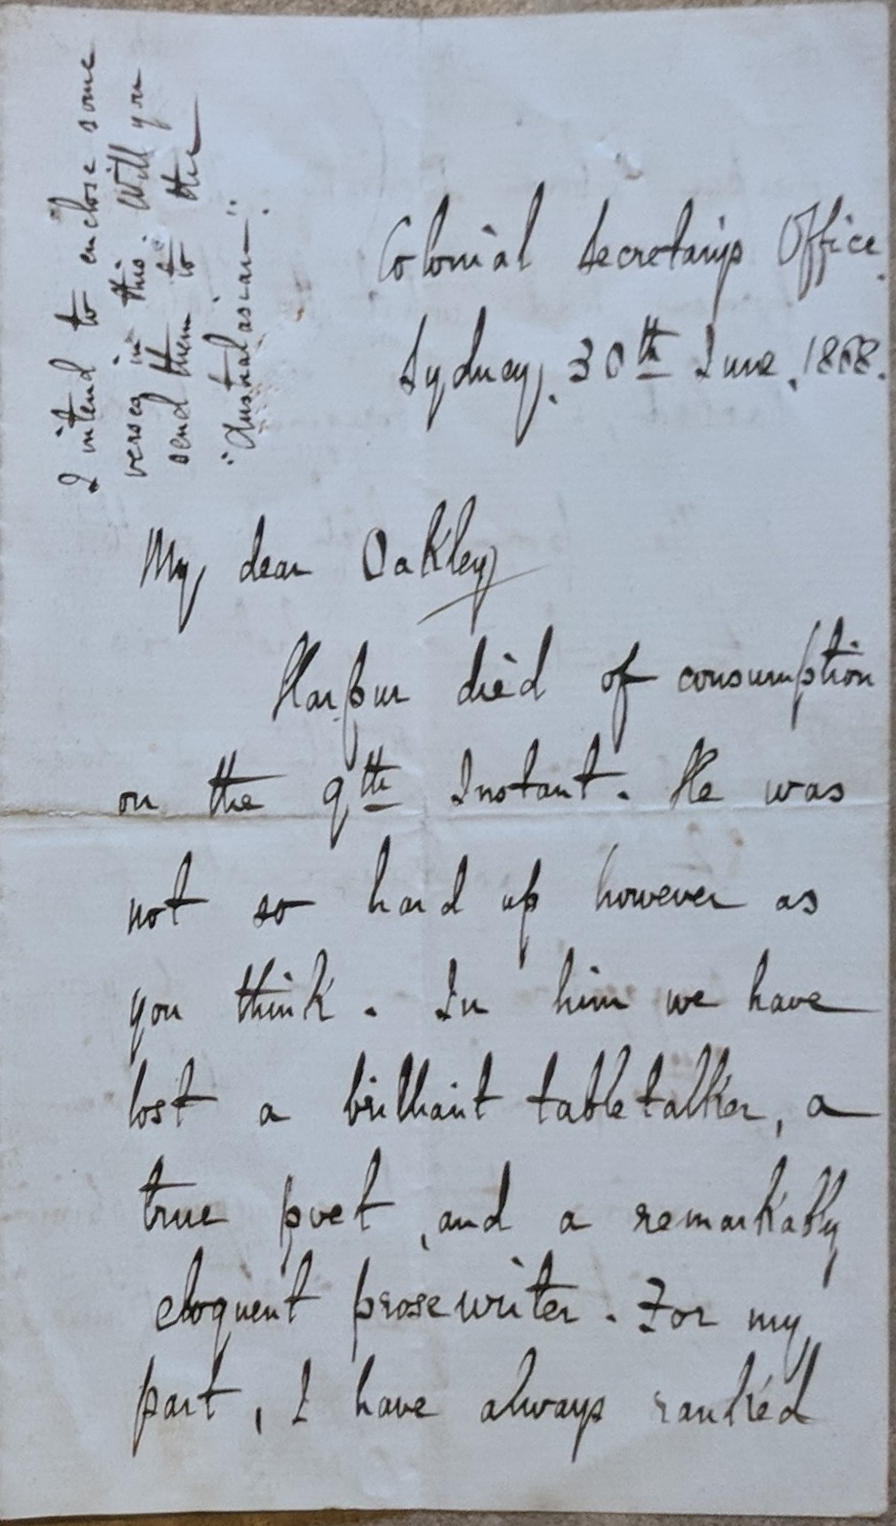 I intend to enclose some
verses in this. Will you
send them to the
"Australasian".
Colonial Secretarys Office.
Sydney, 30th June, 1868.
My dear Oakley
Harpur died of consumption
on the 9th Instant. He was
not so hard up however as
you think. In him we have
lost a brilliant tabletalker, a
true poet, and a remarkably
eloquent prosewriter. For my
part, I have always ranked